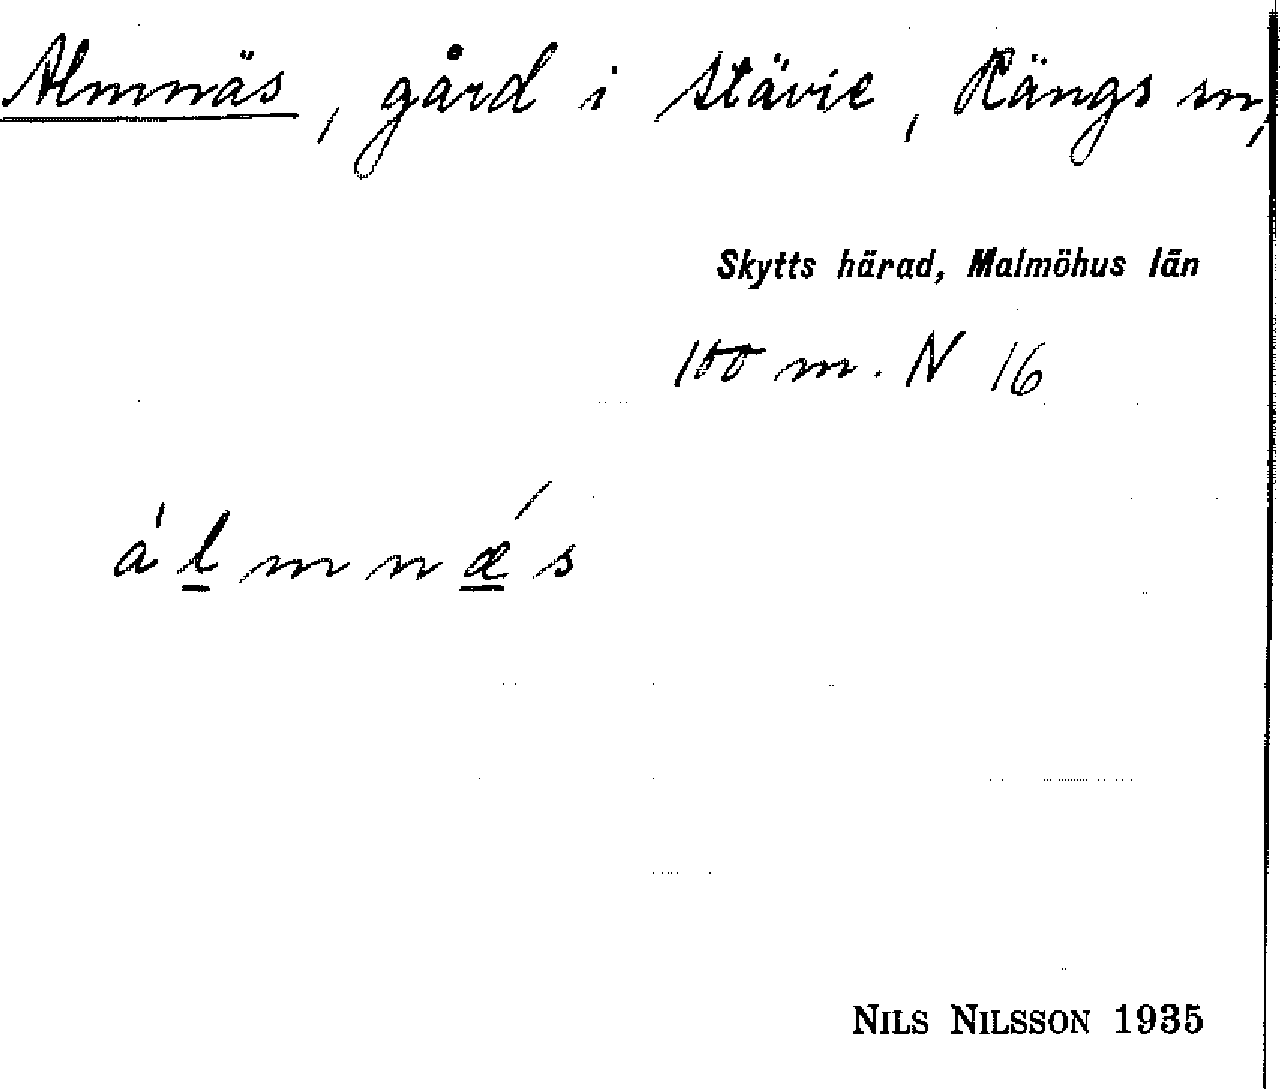 Almnäs, gård i Stävie, Rängs sn,
Skytts härad, Malmöhus län
100 m. N 16
a' l m n ǽ s
NILS NILSSON 1935